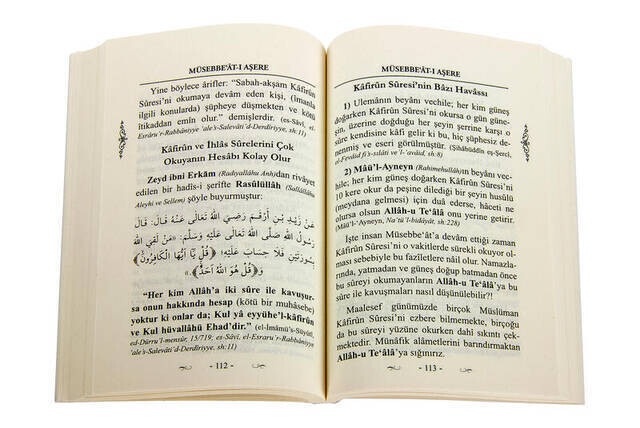 MÜSEBBE'ÂT-I AŞERE
Yine böylece ârifler: “Sabah-akşam Kâfirûn
Sûresi'ni okumaya devâm eden kişi, (îmanla
ilgili konularda) şüpheye düşmekten ve kötü
îtikaddan emîn olur.” demişlerdir. (es-Sâvî, el-
Esraru'r-Rabbâniyye 'ale's-Salevâti'd-Derdîriyye, sh:11)
Kâfirûn ve İhlâs Sûrelerini Çok
Okuyanın Hesâbı Kolay Olur
Zeyd ibni Erkâm (Radıyallâhu Anh)dan rivâyet
edilen bir hadîs-i şerîfte Rasûlüllâh (Sallâllâhu
Aleyhi ve Sellem) şöyle buyurmuştur:
عَنْ زَيْدِ بْنِ أَرْقَمَ رَضِيَ اللّٰهُ عَنْهُ قَالَ: قَالَ
رَسُولُ اللّٰهِ صَلَّى اللّٰهُ تَعَالَى عَلَيْهِ وَسَلَّمَ: «مَنْ لَقِيَ اللّٰهَ
بِسُورَتَيْنِ فَلَا حِسَابَ عَلَيْهِ؛ ﴿قُلْ يَا أَيُّهَا الْكَافِرُونَ﴾
وَ﴿قُلْ هُوَ اللّٰهُ أَحَدٌ﴾»
“Her kim Allâh'a iki sûre ile kavuşur-
sa onun hakkında hesap (kötü bir muhâsebe)
yoktur ki onlar da; Kul yâ eyyühe'l-kâfirûn
ve Kul hüvallâhü Ehad'dir.” (el-İmâmü's-Süyûtî,
ed-Dürru'l-mensûr, 15/719; es-Sâvî, el-Esraru'r-Rabbâniyye
'ale's-Salevâti'd-Derdîriyye, sh:11)
- 112 -
MÜSEBBE'ÂT-I AŞERE
Kâfirûn Sûresi'nin Bâzı Havâssı
1) Ulemânın beyânı vechile; her kim güneş
doğarken Kâfirûn Sûresi'ni okursa o gün güne-
şin, üzerine doğduğu her şeyin şerrine karşı o
sûre kendisine kâfi gelir ki bu, hiç şüphesiz de-
nenmiş ve eseri görülmüştür. (Şihâbüddîn eş-Şercî,
el-Fevâid fi's-sılâti ve'l-'avâid, sh:8)
2) Mâü'l-Ayneyn (Rahimehullâh)ın beyânı ve-
chile; her kim güneş doğarken Kâfirûn Sûresi'ni
10 kere okur da peşine dilediği bir şeyin husûlü
(meydana gelmesi) için duâ ederse, hâceti ne
olursa olsun Allâh-u Te'âlâ onu yerine getirir.
(Mâü'l-Ayneyn, Na'tü'l-bidâyât, sh:228)
İşte insan Müsebbe'ât'a devâm ettiği zaman
Kâfirûn Sûresi'ni o vakitlerde sürekli okuyor ol-
ması sebebiyle bu fazîletlere nâil olur. Namazla-
rında, yatmadan ve güneş doğup batmadan önce
bu sûreyi okumayanların Allâh-u Te'âlâ'ya bu
sûre ile kavuşmaları nasıl düşünülebilir?!
Maalesef günümüzde birçok Müslüman
Kâfirûn Sûresi'ni ezbere bilmemekte, birçoğu
da bu sûreyi yüzüne okurken dahî sıkıntı çek-
mektedir. Münâfık alâmetlerini barındırmaktan
Allâh-u Te'âlâ'ya sığınırız.
- 113 -